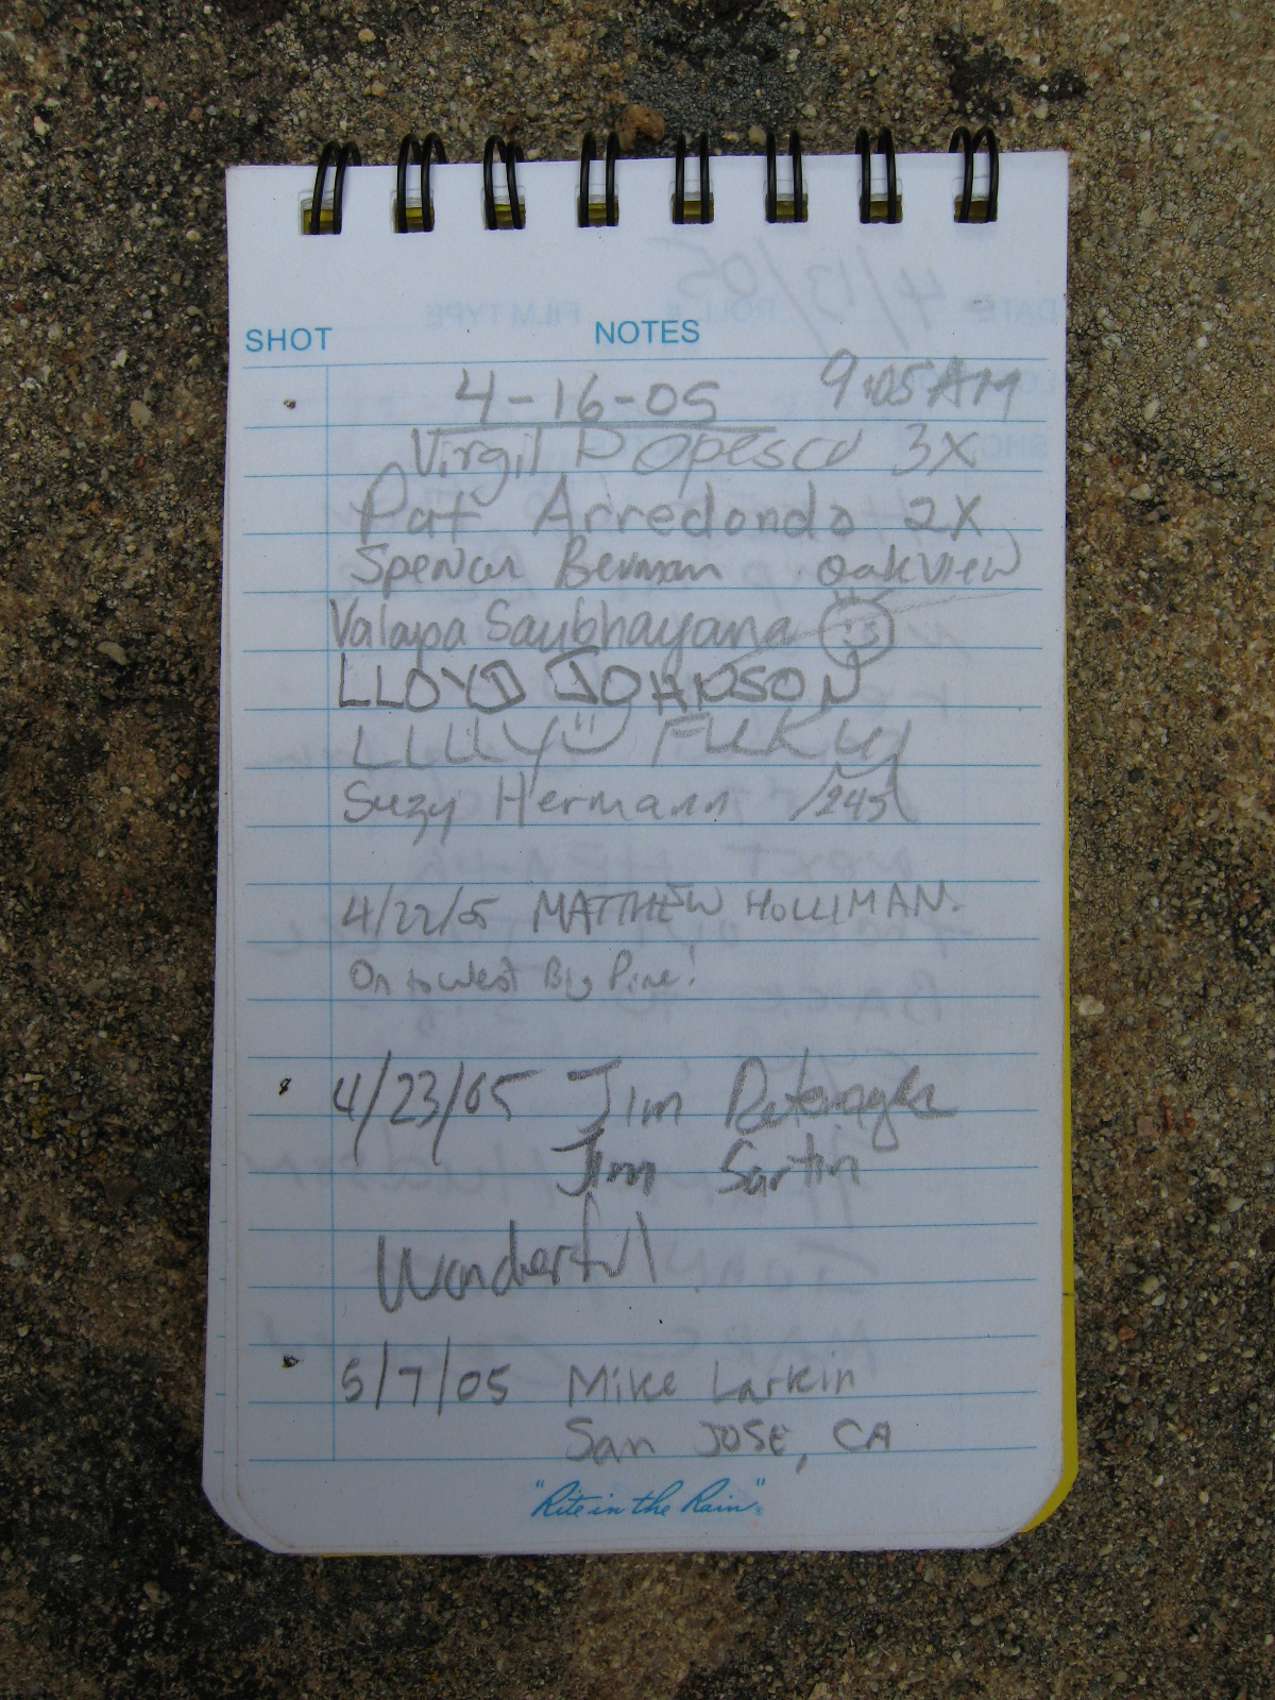 SHOT NOTES
4-16-05 9:05AM
Virgil Popescu 3X
Pat Arredondo 2X
Spencer Berman Oakview
Valapa Saubhayana
LLOYD JOHNSON
LILLY
Suzy Hermann
4/22/05 MATTHEW HOLLIMAN.
On to West Big Pine!
4/23/05 Jim
Jim Sartin
Wonderful
5/7/05 Mike Larkin
San JOSE, CA
"Rite in the Rain"